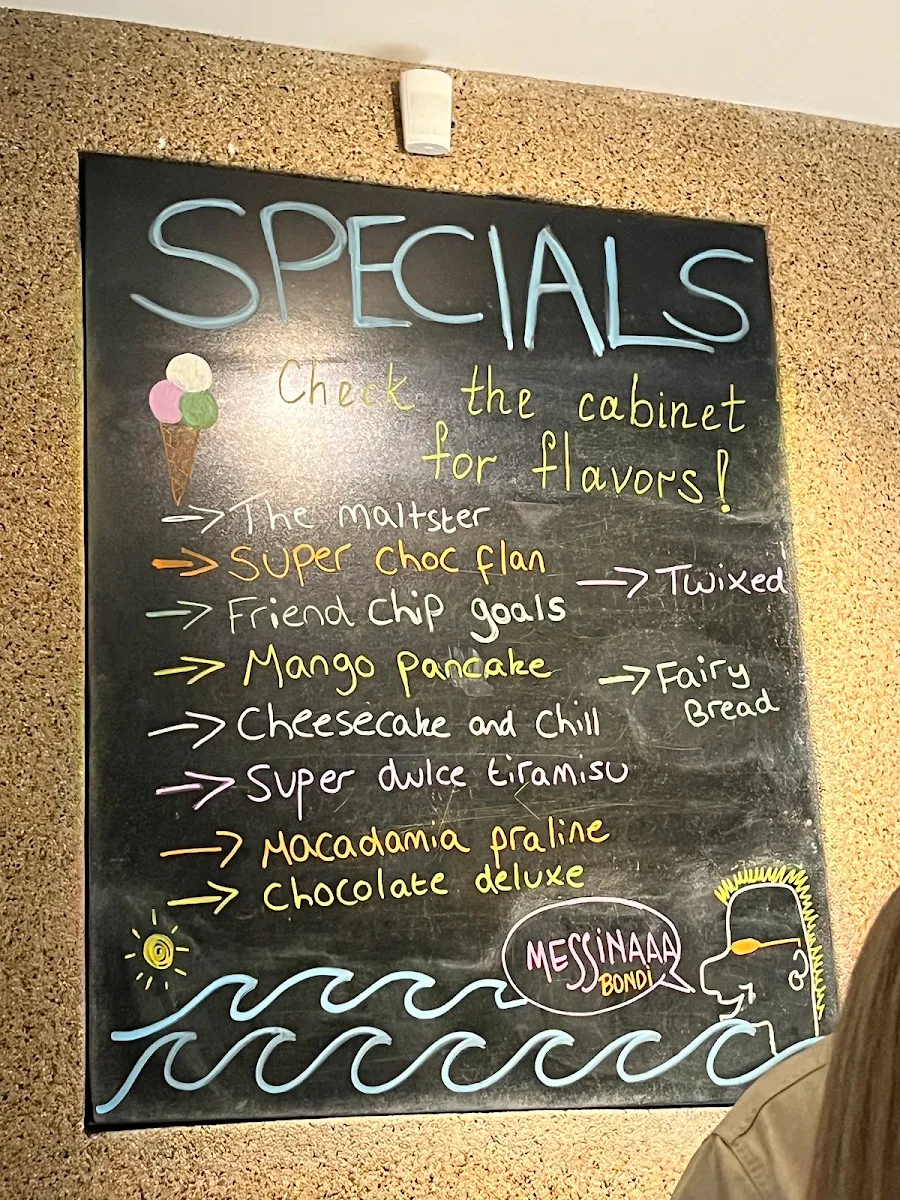 SPECIALS
Check the cabinet
for flavors!
→ The maltster
→ Super choc flan
→ Friend chip goals
→ Mango pancake
→ Cheesecake and Chill
→ Super dulce tiramisu
→ Macadamia praline
→ Chocolate deluxe
→ Twixed
→ Fairy
Bread
MESSiNAAA
BONDi